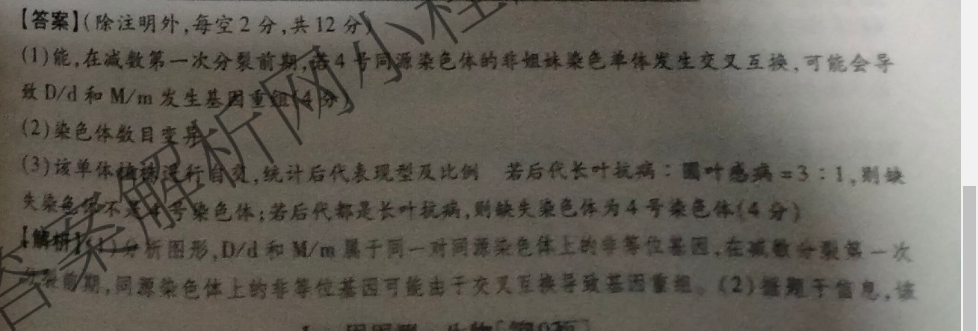 【答案】(除注明外,每空2分,共12分)
(1)能,在减数第一次分裂前期,若4号同源染色体的非姐妹染色单体发生交叉互换,可能会导
致D/d和M/m发生基因重组(4分)
(2)染色体数目变异
(3)该单体植株进行自交,统计后代表现型及比例 若后代长叶抗病:圆叶感病=3:1,则缺
失染色体不是4号染色体;若后代都是长叶抗病,则缺失染色体为4号染色体(4分)
【解析】(1)分析图形,D/d和M/m属于同一对同源染色体上的非等位基因,在减数分裂第一次
分裂前期,同源染色体上的非等位基因可能由于交叉互换导致基因重组。(2)据题干信息,该
答案解析网小程